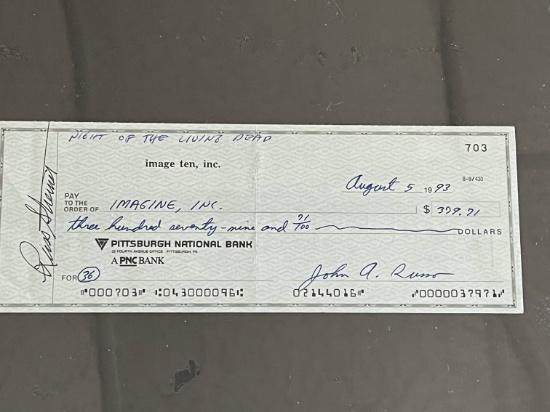 NIGHT OF THE LIVING DEAD
image ten, inc.
703
8-9/430
August 5 1993
PAY TO THE ORDER OF IMAGINE, INC. $ 379.71
three hundred seventy-nine and 71/100 DOLLARS
PITTSBURGH NATIONAL BANK
A PNC BANK
FOR 36 John A. Russo
⑈000703⑈ ⑆043000096⑆ 02144016⑈ ⑈0000037971⑈